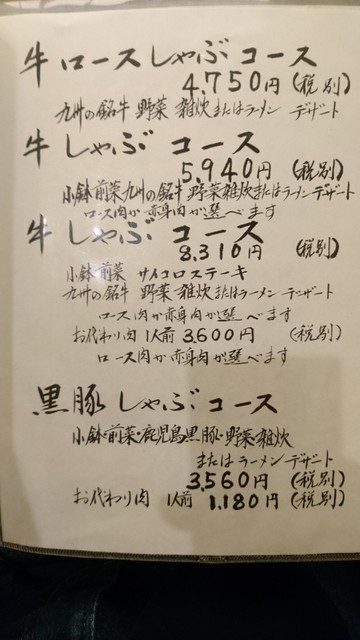 牛ロースしゃぶコース
4,750円(税別)
九州の銘牛 野菜 雑炊またはラーメン デザート
牛しゃぶコース
5,940円(税別)
小鉢 前菜 九州の銘牛 野菜 雑炊またはラーメン デザート
ロース肉か赤身肉が選べます
牛しゃぶコース
8,310円(税別)
小鉢 前菜 サイコロステーキ
九州の銘牛 野菜 雑炊またはラーメン デザート
ロース肉か赤身肉が選べます
お代わり肉 1人前 3,600円(税別)
ロース肉か赤身肉が選べます
黒豚しゃぶコース
小鉢・前菜・鹿児島黒豚・野菜・雑炊
またはラーメン デザート
3,560円(税別)
お代わり肉 1人前 1,180円(税別)